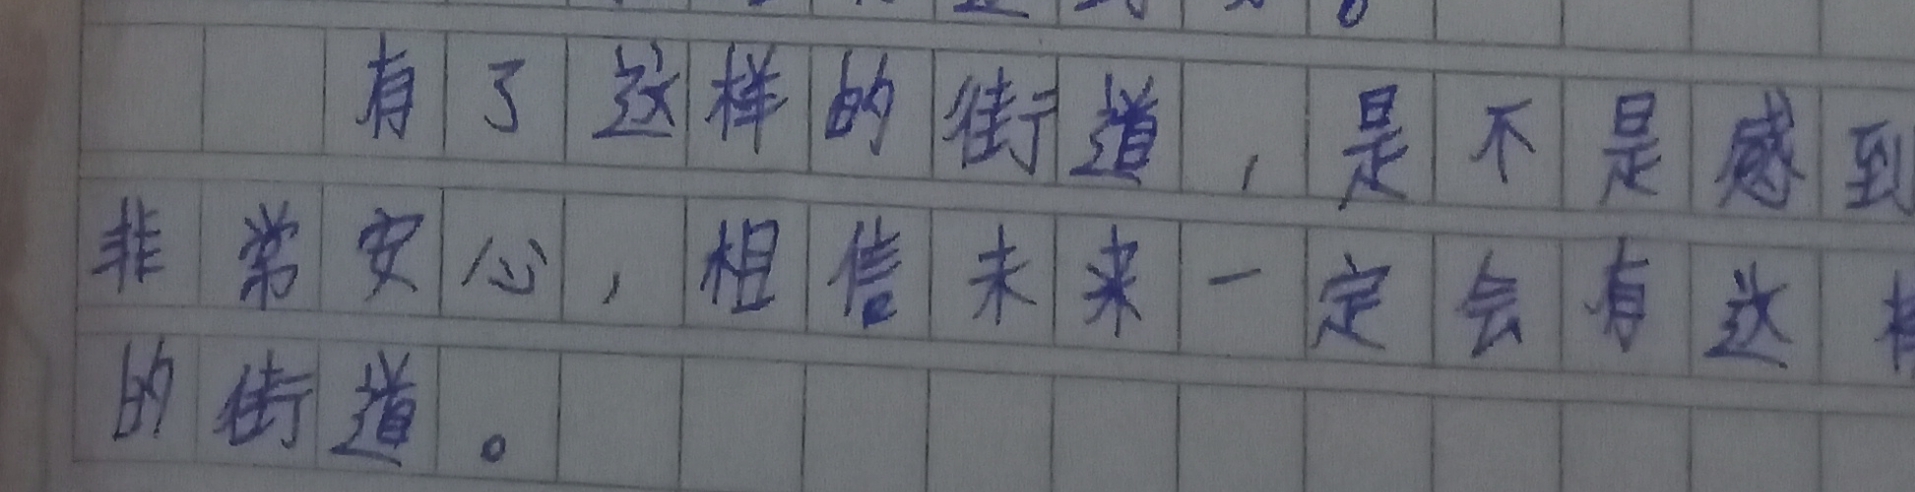 有了这样的街道，是不是感到
非常安心，相信未来一定会有这样
的街道。